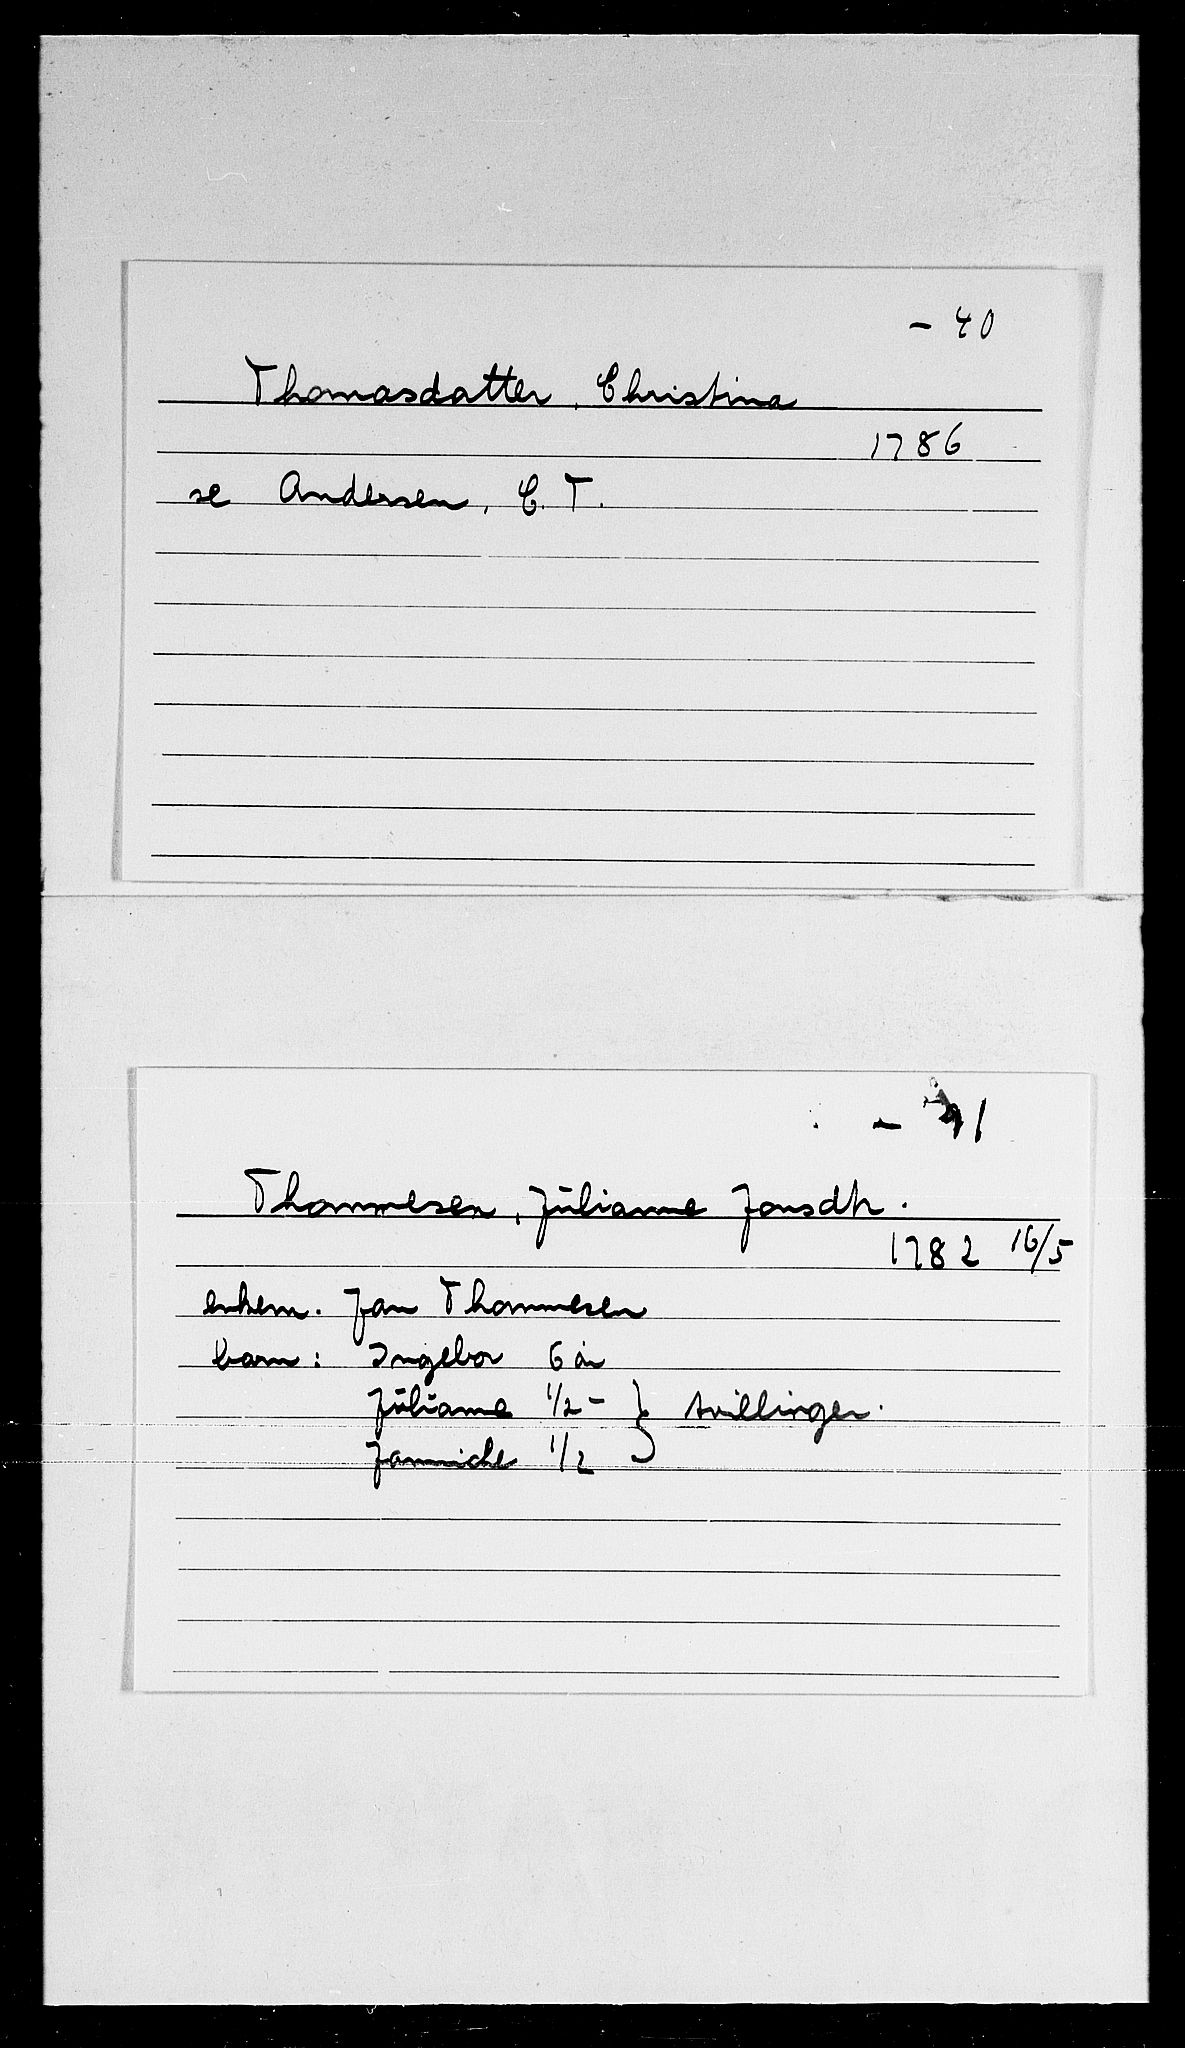 - 40
Thomasdatter, Christina
1786
se Andersen, C. T.
- 41
Thommesen, Jülianne Jonsdtr.
1782 16/5
enkem. Jan Thommesen
barn: Ingebor 6 år
Jülianne 1/2 - } tvillinger.
Janniche 1/2